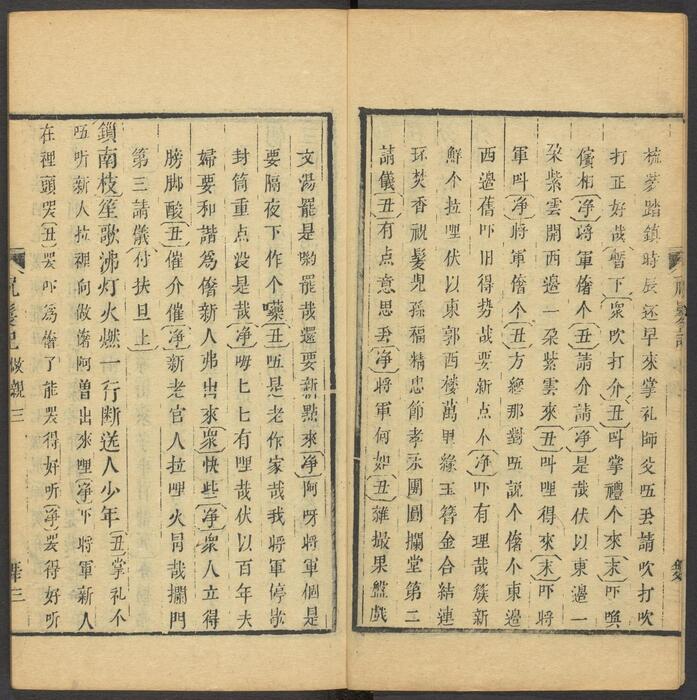 梳篸踏鎮時辰還早來掌礼師父吾丟請吹打吹
打正好哉(暫下)(衆吹打介)(丑)呌掌禮个來(末)吓喚
儐相(净)將軍偺个(丑)請介請(净)是哉伏以東邉一
朶紫雲開西邉一朶紫雲來(丑)呌哩得來(末)吓將
軍呌(净)將軍偺个(丑)方纔那對吾説个偺个東邉
西邉舊吓旧得势哉要新点个(净)吓有理哉簇新
鮮个拉哩伏以東郭西楼萬里緣玉簪金合結連
环焚香祝髮児孫福精忠節孝永團圓攔堂第二
請儀(丑)有点意思丟(净)將軍何如(丑)雜撮果盤戱
文湯罷是喲罷哉還要新點來(净)阿呀將軍個是
要隔夜下作个嚛(丑)吾是老作家哉我將軍停歇
封筒重点没是哉(净)嗨匕匕有哩哉伏以百年夫
婦要和諧爲偺新人弗出來(衆)快些(净)衆人立得
膀脚酸(丑)催介催(净)新老官人拉哩火冐哉攔門
第三請儀(付扶旦上)
鎖南枝笙歌沸灯火燃一行断送人少年(丑)掌礼个
吾听新人拉裡向做偺阿曽出來哩(净)吓將軍新人
在裡頭哭(丑)哭吓爲偺了能哭得好听(净)哭得好听
祝髮記 做親 三